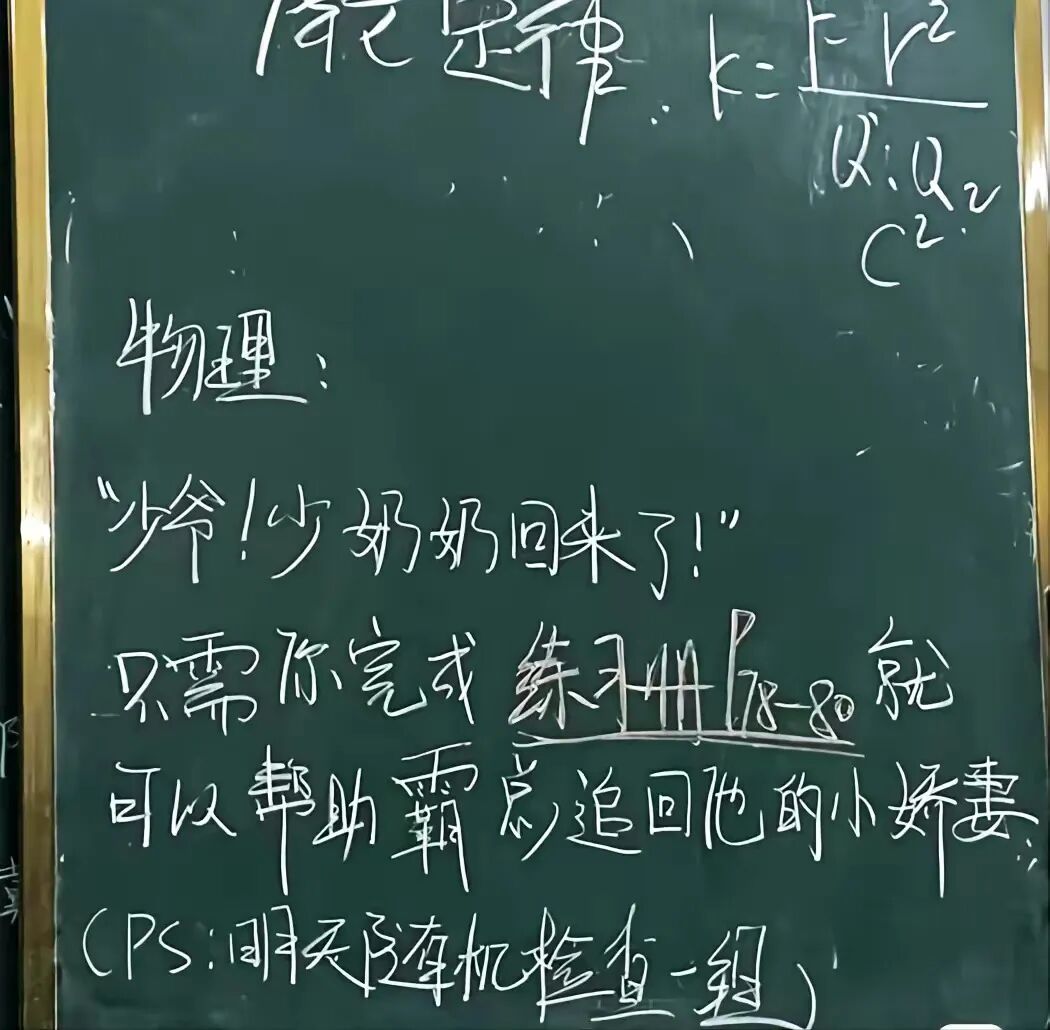 定律: k = F r²
Q₁Q₂
C²
物理:
“少爷!少奶奶回来了!”
只需你完成 练习册 P78-80 就
可以帮助霸总追回他的小娇妻.
(PS:明天随机检查一组)